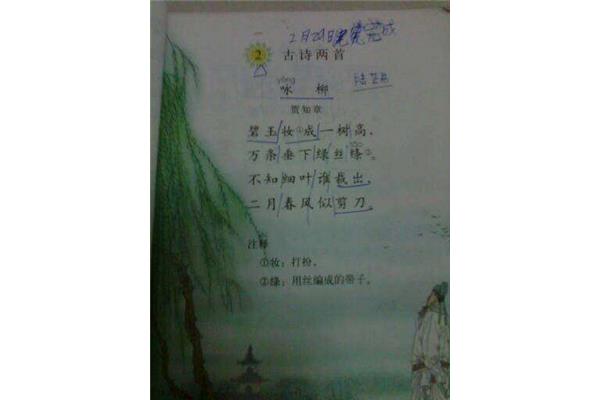 2月29日完成
2 古诗两首
yǒng
咏 柳
贺知章
碧玉妆①成一树高，
万条垂下绿丝绦②。
不知细叶谁裁出，
二月春风似剪刀。
注释
①妆：打扮。
②绦：用丝编成的带子。